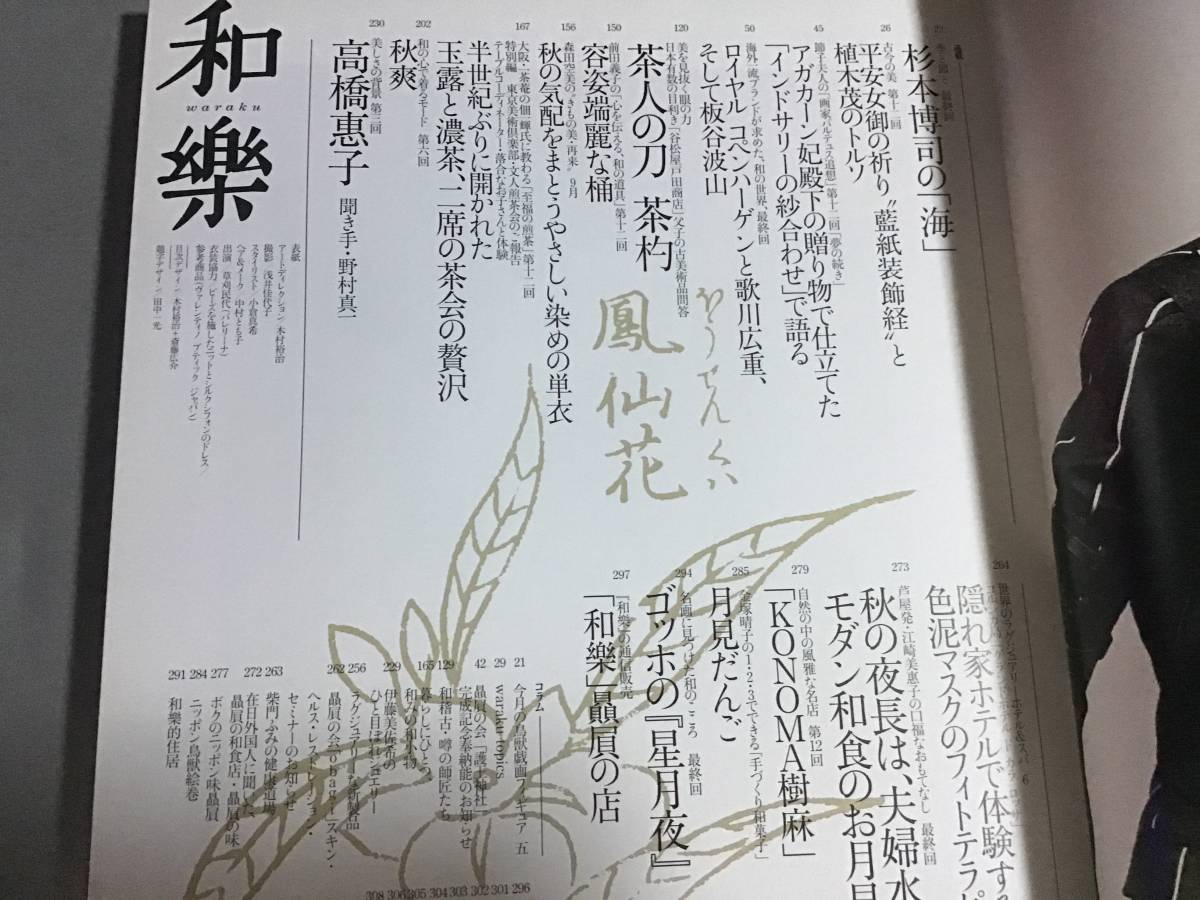 和樂
waraku
杉本博司の「海」
26
古今の美 第十二回
平安女御の祈り〝藍紙装飾経〟と
植木茂のトルソ
45
節子夫人の「画家バルテュス追想」第十二回「夢の続き」
アガカーン妃殿下の贈り物で仕立てた
「インドサリーの紗合わせ」で語る
50
海外一流ブランドが求めた、和の世界、最終回
ロイヤル コペンハーゲンと歌川広重、
そして板谷波山
120
美を見抜く眼の力
日本有数の目利き「谷松屋戸田商店」父子の古美術品問答
茶人の刀 茶杓
150
前田義子の「心を伝える、和の道具」第十二回
容姿端麗な桶
156
森田空美の〝きもの美・再来〟9月
秋の気配をまとうやさしい染めの単衣
167
大阪・茶菴の佃一輝氏に教わる「至福の煎茶」第十二回
特別編 東京美術倶楽部・文人煎茶会のご報告
テーブルコーディネーター・落合なお子さんと体験
半世紀ぶりに開かれた
玉露と濃茶、二席の茶会の贅沢
202
和の心で着るモード 第六回
秋爽
230
美しさの背景 第三回
高橋惠子 聞き手・野村真一
表紙
アートディレクション/木村裕治
撮影/浅井佳代子
スタイリスト/小倉真希
ヘア&メーク/中村とも子
出演/草刈民代(バレリーナ)
衣装協力/ビーズを施したニットとシルクシフォンのドレス/
参考商品(ヴァレンティノ ブティック ジャパン)
目次デザイン/木村裕治+斎藤広介
題字デザイン/田中一光
ほうせんくハ
鳳仙花
264
隠れ家ホテルで体験す
色泥マスクのフィトテラピ
273
芦屋発・江崎美惠子の口福なおもてなし 最終回
秋の夜長は、夫婦水
モダン和食のお月見
279
自然の中の風雅な名店 第12回
「KONOMA樹麻」
285
金塚晴子の1・2・3でできる「手づくり和菓子」
月見だんご
294
名画に見つけた和のこころ 最終回
ゴッホの『星月夜』
297
『和樂』の通信販売
「和樂」贔屓の店
コラム
21 今月の鳥獣戯画フィギュア 五
29 waraku topics
42 贔屓の会「護王神社」
完成記念奉納能のお知らせ
129 和稽古・噂の師匠たち
165 暮らしにひとつ、
和みの和小物
229 伊藤美佐季の
ひと目ぼれジュエリー
256 ラグジュアリーな新製品
262 贔屓の会「sobager」スキン・
ヘルス・レストレイション・
セミナーのお知らせ
263 柴門ふみの健康道場
272 在日外国人に聞いた、
贔屓の和食店・贔屓の味
277 ボクのニッポン味贔屓
284 ニッポン鳥獣絵巻
291 和樂的住居
296
301
302
303
304
305
306
308